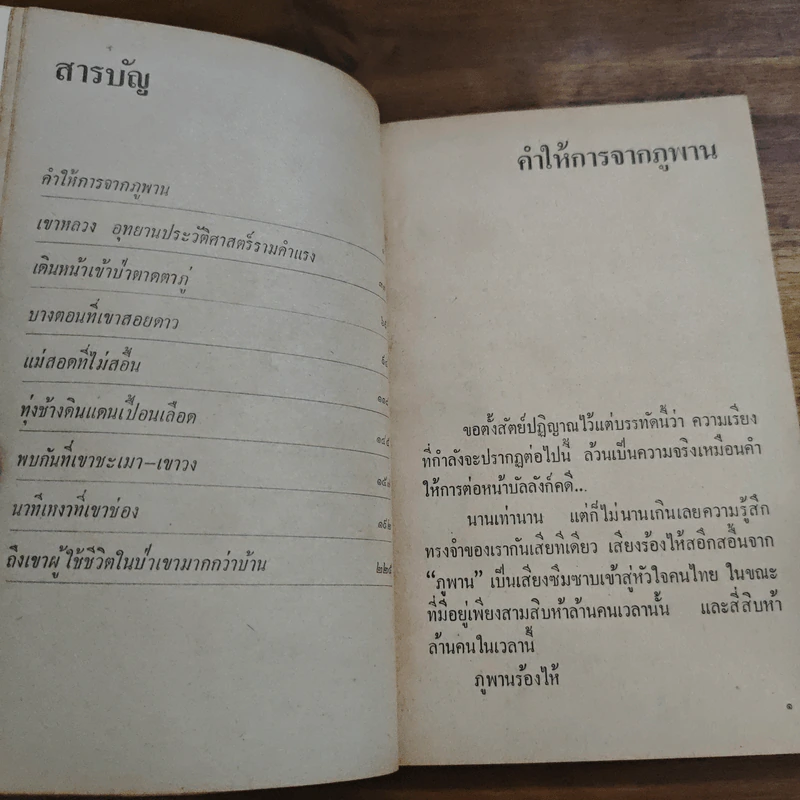 สารบัญ
คำให้การจากภูพาน
เขาหลวง อุทยานประวัติศาสตร์รามคำแรง
เดินหน้าเข้าป่าตาดตาภู่
บางตอนที่เขาสอยดาว
แม่สอดที่ไม่สอื้น
ทุ่งช้างดินแดนเปื้อนเลือด
พบกันที่เขาชะเมา-เขาวง
นาทีเหงาที่เขาช่อง
ถึงเขาผู้ใช้ชีวิตในป่าเขามากกว่าบ้าน
คำให้การจากภูพาน
ขอตั้งสัตย์ปฏิญาณไว้แต่บรรทัดนี้ว่า ความเรียง
ที่กำลังจะปรากฏต่อไปนี้ ล้วนเป็นความจริงเหมือนคำ
ให้การต่อหน้าบัลลังก์คดี...
นานเท่านาน แต่ก็ไม่นานเกินเลยความรู้สึก
ทรงจำของเรากันเสียทีเดียว เสียงร้องไห้สอึกสอื้นจาก
“ภูพาน” เป็นเสียงซึมซาบเข้าสู่หัวใจคนไทย ในขณะ
ที่มีอยู่เพียงสามสิบห้าล้านคนเวลานั้น และสี่สิบห้า
ล้านคนในเวลานี้
ภูพานร้องไห้
๑